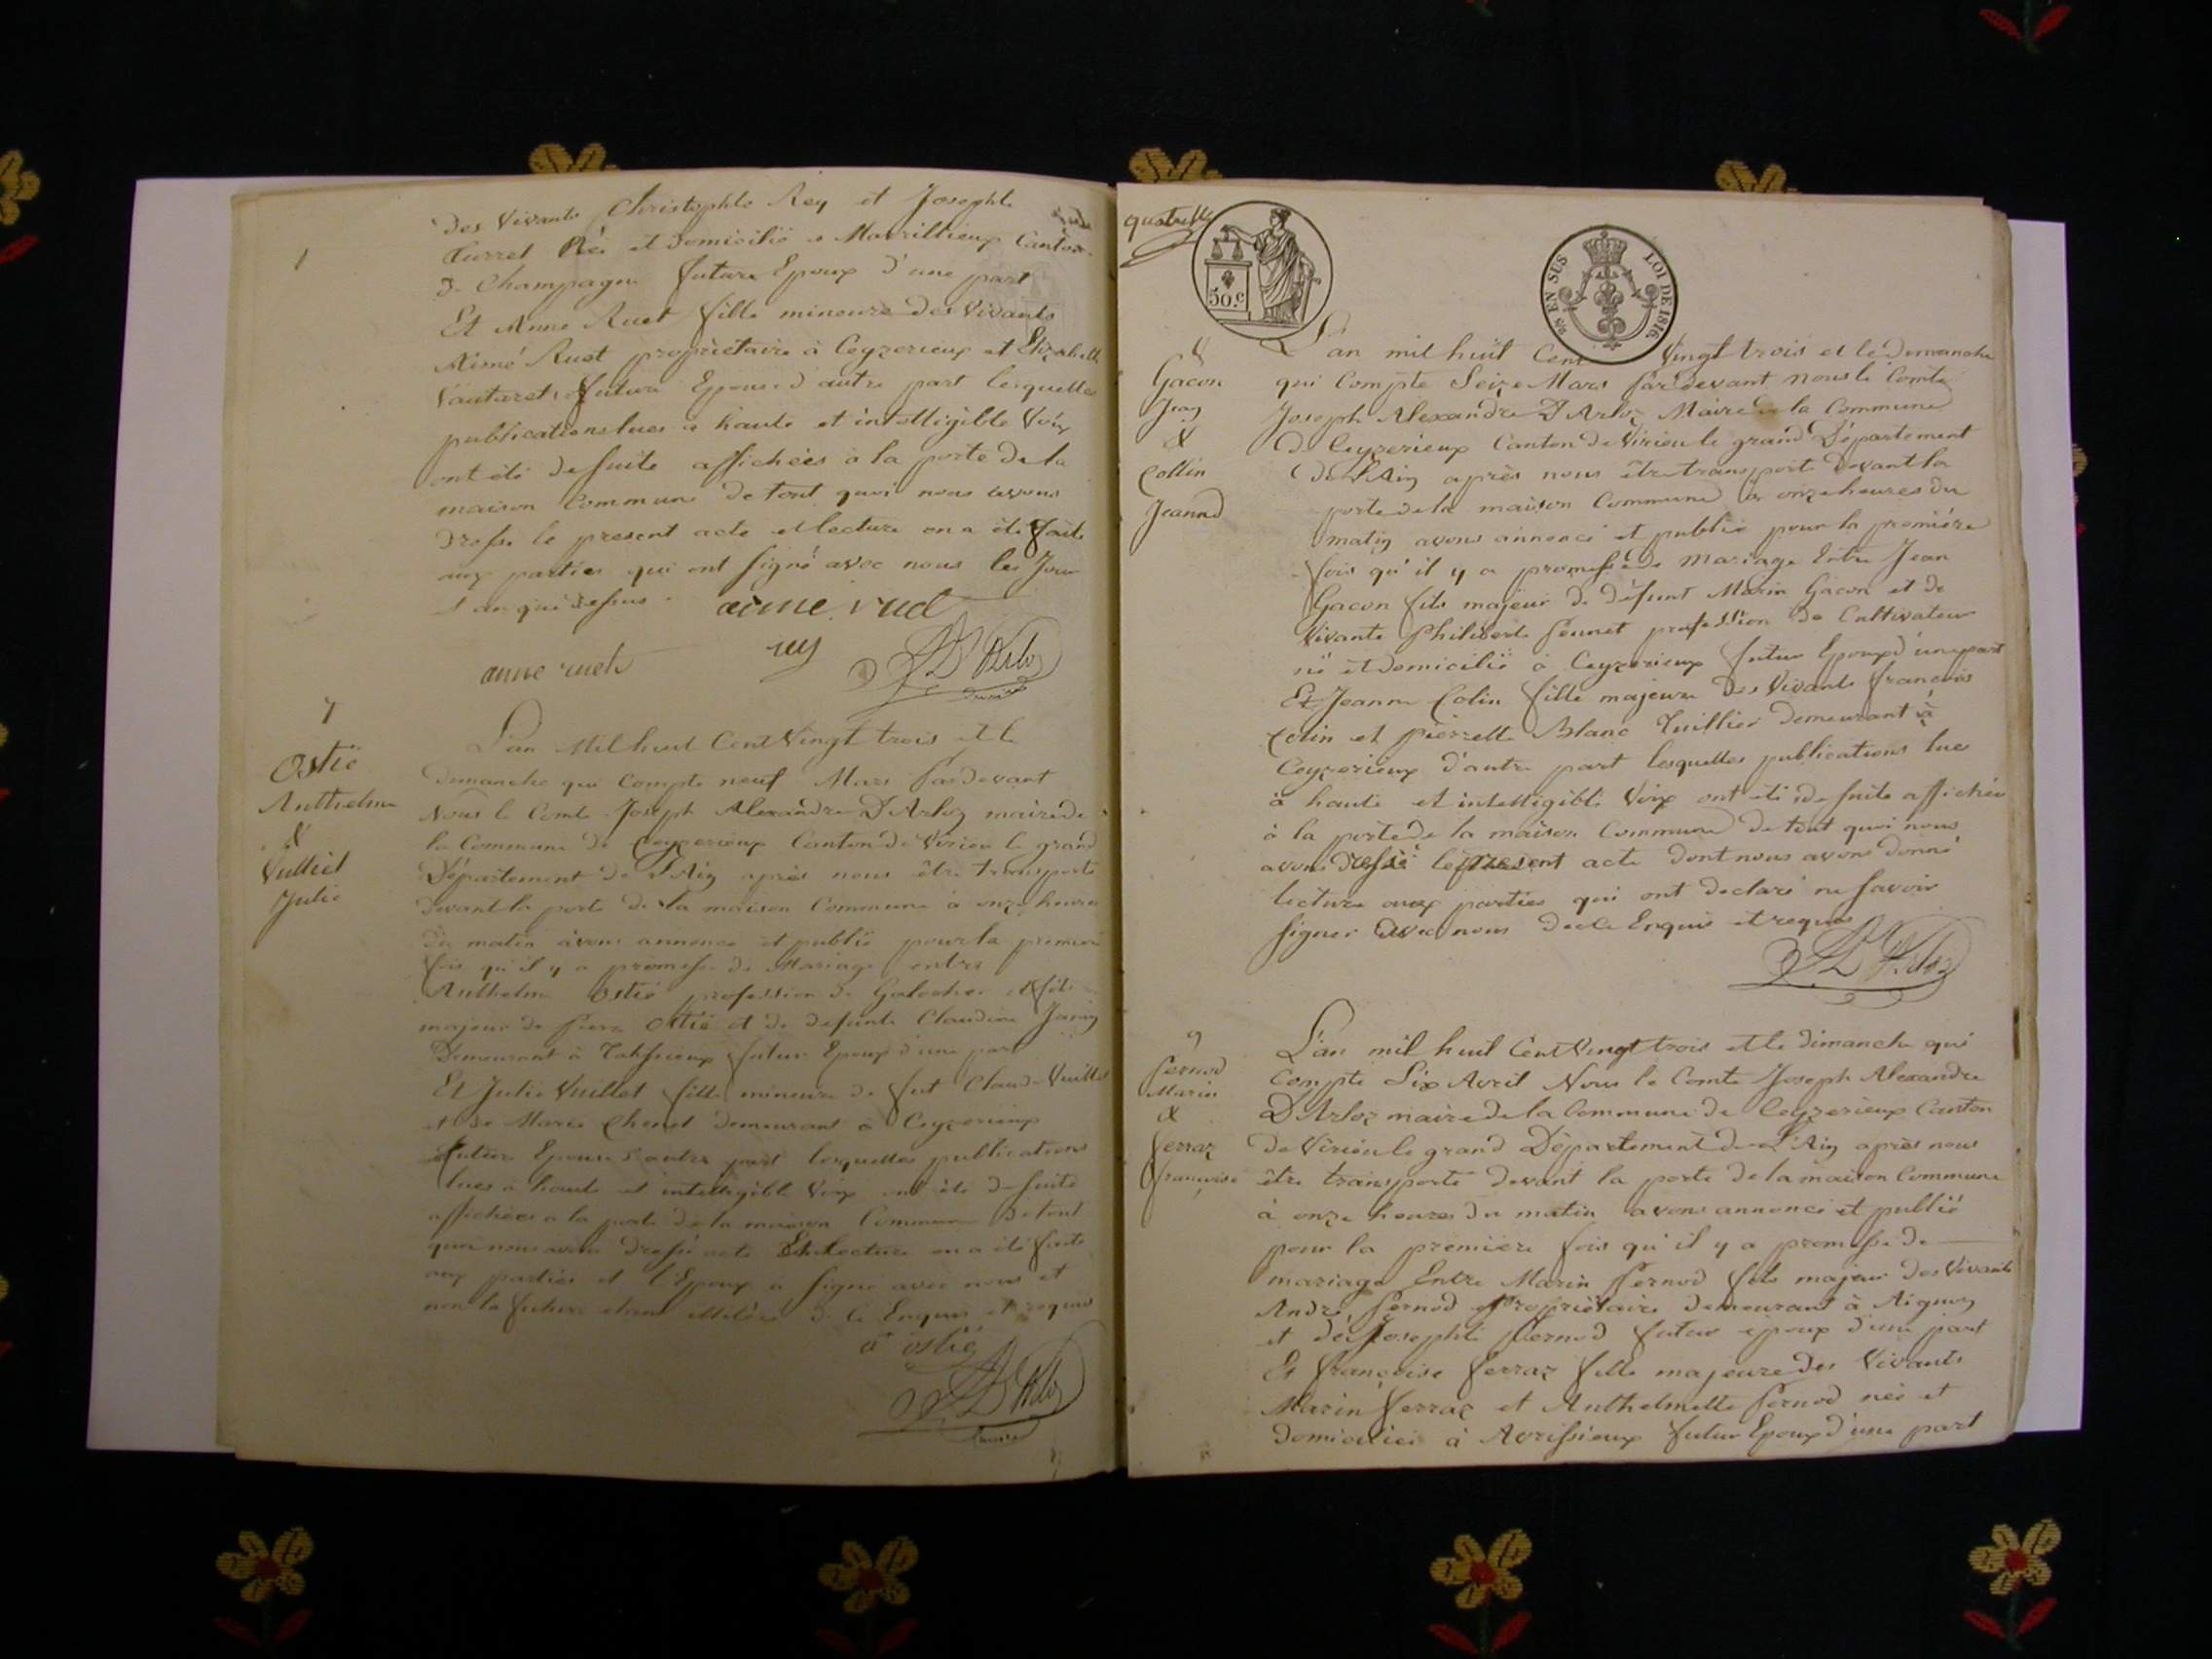 des Vivants Christophle Rey et Josephte
Curret Né et domicilié a Marillieux Canton
de Champagne future Epoux d'une part
Et Anne Ruet fille mineure des Vivants
Aimé Ruet propriétaire à Ceyzerieux et Elizabeth
Vauturet future Epouse d'autre part lesquelles
publications lues a haute et intelligible Voix
ont été de suite affichées à la porte de la
maison Commune de tout quoi nous avons
dressé le present acte et lecture en a été faite
aux parties qui ont signé avec nous les Jour
et an qui dessus.
aimé ruet
anne rueh
rey
D'Arloz
7
Ostié
Anthelme
&
Vulliet
Julie
L'an Mil huit Cent Vingt trois et le
dimanche qui Compte neuf Mars Pardevant
Nous le Comte Joseph Alexandre D'Arloz maire de
la Commune de Ceyzerieux Canton de Virieu le grand
Département de l'Ain après nous être transporté
devant la porte de la maison Commune à onze heures
du matin avons annoncé et publié pour la premiere
fois qu'il y a promesse de Mariage entre
Anthelme Ostié profession de Galocher et fils
majeur de Pierre Ostié et de defunte Claudine Janin
Demeurant à Talissieux futur Epoux d'une part
Et Julie Vuillet fille mineure de fut Claude Vuillet
et de Marie Chenet demeurant à Ceyzerieux
future Epouse d'autre part lesquelles publications
lues a haute et intelligible Voix ont été de suite
affichées a la porte de la maison Commune de tout
quoi nous avons dressé acte Et lecture en a été faite
aux parties et l'Epoux a signé avec nous et
non la future etant illitéré de ce Enquis et requis
a ostié
D'Arloz
maire
quatrelle
50.c
EN SUS
LOI DE 1816.
8
Gacon
Jean
&
Collin
Jeanne
L'an mil huit Cent Vingt trois et le Dimanche
qui Compte Seize Mars Pardevant nous le Comte
Joseph Alexandre D'Arloz Maire de la Commune
de Ceyzerieux Canton de Virieu le grand Département
de l'Ain après nous être transporté devant la
porte de la maison Commune à onze heures du
matin avons annoncé et publié pour la premiére
fois qu'il y a promesse de mariage Entre Jean
Gacon fils majeur de défunt Marin Gacon et de
Vivante Philiberte Peunet profession de Cultivateur
né et domicilié à Ceyzerieux futur Epoux d'une part
Et Jeanne Colin fille majeure des Vivants francois
Colin et pierrette Blanc Tuillier demeurant à
Ceyzerieux d'autre part lesquelles publications lues
à haute et intelligible Voix ont été de suite affichées
à la porte de la maison Commune de tout quoi nous
avons dressé le present acte dont nous avons donné
lecture aux parties qui ont declaré ne savoir
signer avec nous de ce Enquis et requis
D'Arloz
9
Pernod
Marin
&
Ferraz
françoise
L'an mil huit Cent Vingt trois et le dimanche qui
Compte Six Avril Nous le Comte Joseph Alexandre
D'Arloz maire de la Commune de Ceyzerieux Canton
de Virieu le grand Département de L'Ain après nous
être transporté devant la porte de la maison Commune
à onze heures du matin avons annoncé et publié
pour la premiére fois qu'il y a promesse de
mariage Entre Marin Pernod fils majeur des Vivants
André Pernod propriétaire demeurant à Aignoz
et de Josephte Pernod futur epoux d'une part
Et françoise Ferraz fille majeure des Vivants
Marin Ferraz et Anthelmette Pernod née et
domiciliée à Avrissieux futur Epoux d'une part